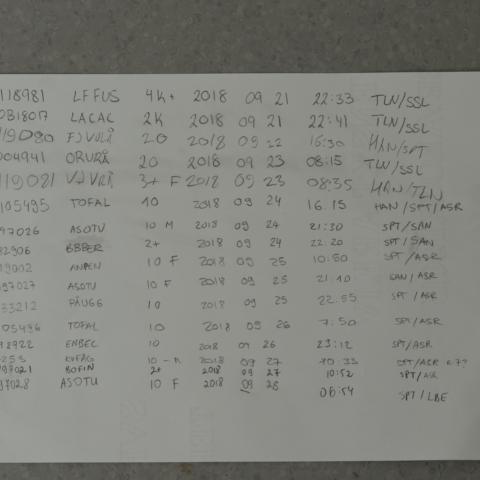 118981 LFFUS 4K+ 2018 09 21 22:33 TLN/SSL
081807 LACAC 2K 2018 09 21 22:41 TLN/SSL
119080 FJVULÅ 20 2018 09 22 16:30 HAN/SPT
004941 ORURÅ 20 2018 09 23 08:15 TLN/SSL
119081 VJVRÅ 3+ F 2018 09 23 08:35 HAN/TLN
105495 TOFAL 10 2018 09 24 16.15 HAN/SPT/ASR
97026 ASOTU 10 M 2018 09 24 21:30 SPT/SAN
82906 BBBER 2+ 2018 09 24 22.20 SPT/SAN
19002 ANPEN 10 F 2018 09 25 10:50 SPT/ASR
97027 ASOTU 10 F 2018 09 25 21:10 SAN/ASR
33212 PÄUGG 10 2018 09 25 22.55 SPT/ASR
105496 TOFAL 10 2018 09 26 7:50 SPT/ASR
18922 ENBEC 10 2018 09 26 23:12 SPT/ASR
253 10-M 2018 09 27 10:33 SPT/ASR
97021 BOFIN 2+ 2018 09 27 10:52 SPT/ASR
97028 ASOTU 10 F 2018 09 28 06:54 SPT/LBE